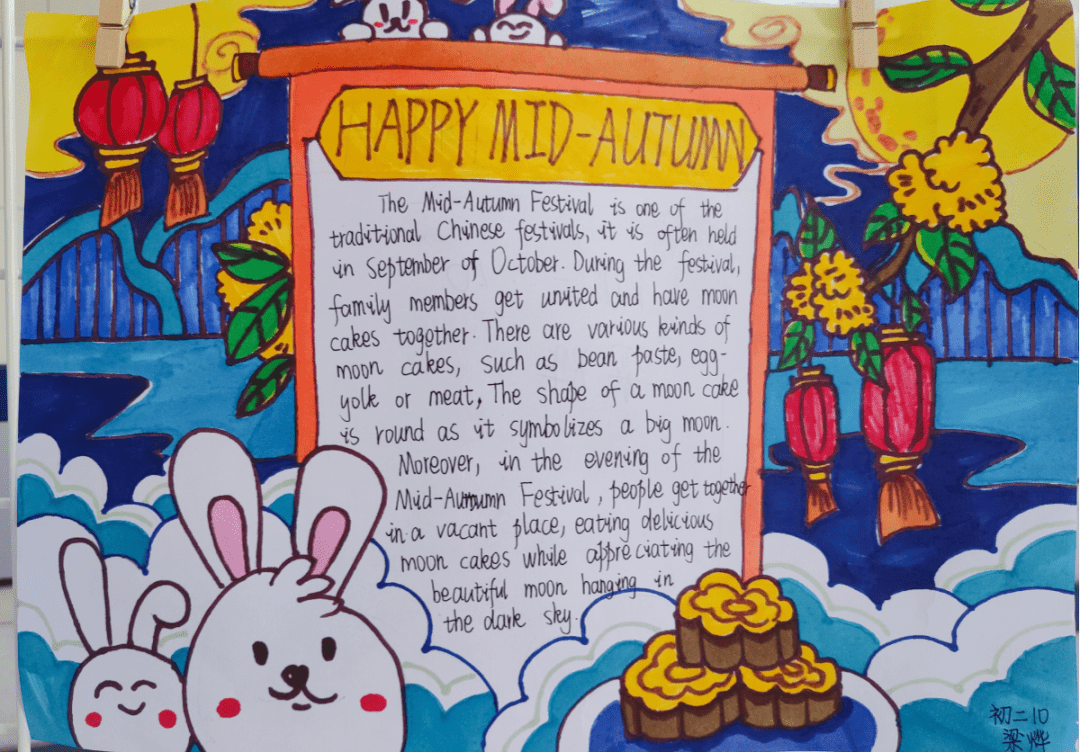 HAPPY MID-AUTUMN
The Mid-Autumn Festival is one of the
traditional Chinese festivals, it is often held
in September of October. During the festival,
family members get united and have moon
cakes together. There are various kinds of
moon cakes, such as bean paste, egg-
yolk or meat, The shape of a moon cake
is round as it symbolizes a big moon.
Moreover, in the evening of the
Mid-Autumn Festival, people get together
in a vacant place, eating delicious
moon cakes while appreciating the
beautiful moon hanging in
the dark sky.
初二10
梁